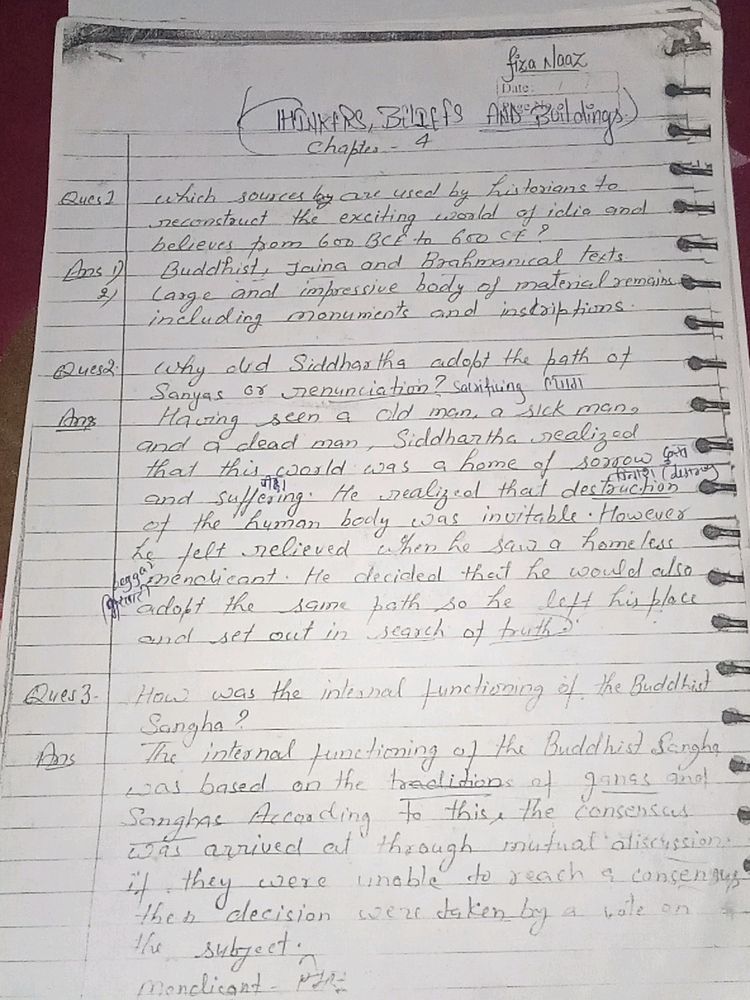 fiza Naaz
Date: / /
(THINKERS, BELIEFS AND Buildings)
Chapter - 4
Ques 1 which sources by are used by historians to
reconstruct the exciting world of idia and
believes from 600 BCE to 600 CE?
Ans 1) Buddhist, Jaina and Brahmanical texts.
2) Large and impressive body of material remains
including monuments and instriptions.
Ques 2. Why did Siddhartha adopt the path of
Sanyas or renunciation? Sacrificing
Ans Having seen a old man, a sick man,
and a dead man, Siddhartha realized
that this world was a home of sorrow
and suffering. He realized that destruction
of the human body was invitable. However
he felt relieved when he saw a homeless
beggar
mendicant. He decided that he would also
adopt the same path so he left his place
and set out in search of truth.
Ques 3. How was the internal functioning of the Buddhist
Sangha?
Ans The internal functioning of the Buddhist Sangha
was based on the traditions of ganas and
Sanghas According to this, the consensus
was arrived at through mutual discussion.
if they were unable to reach a consensus
then decision were taken by a vote on
the subject.
Mendicant -